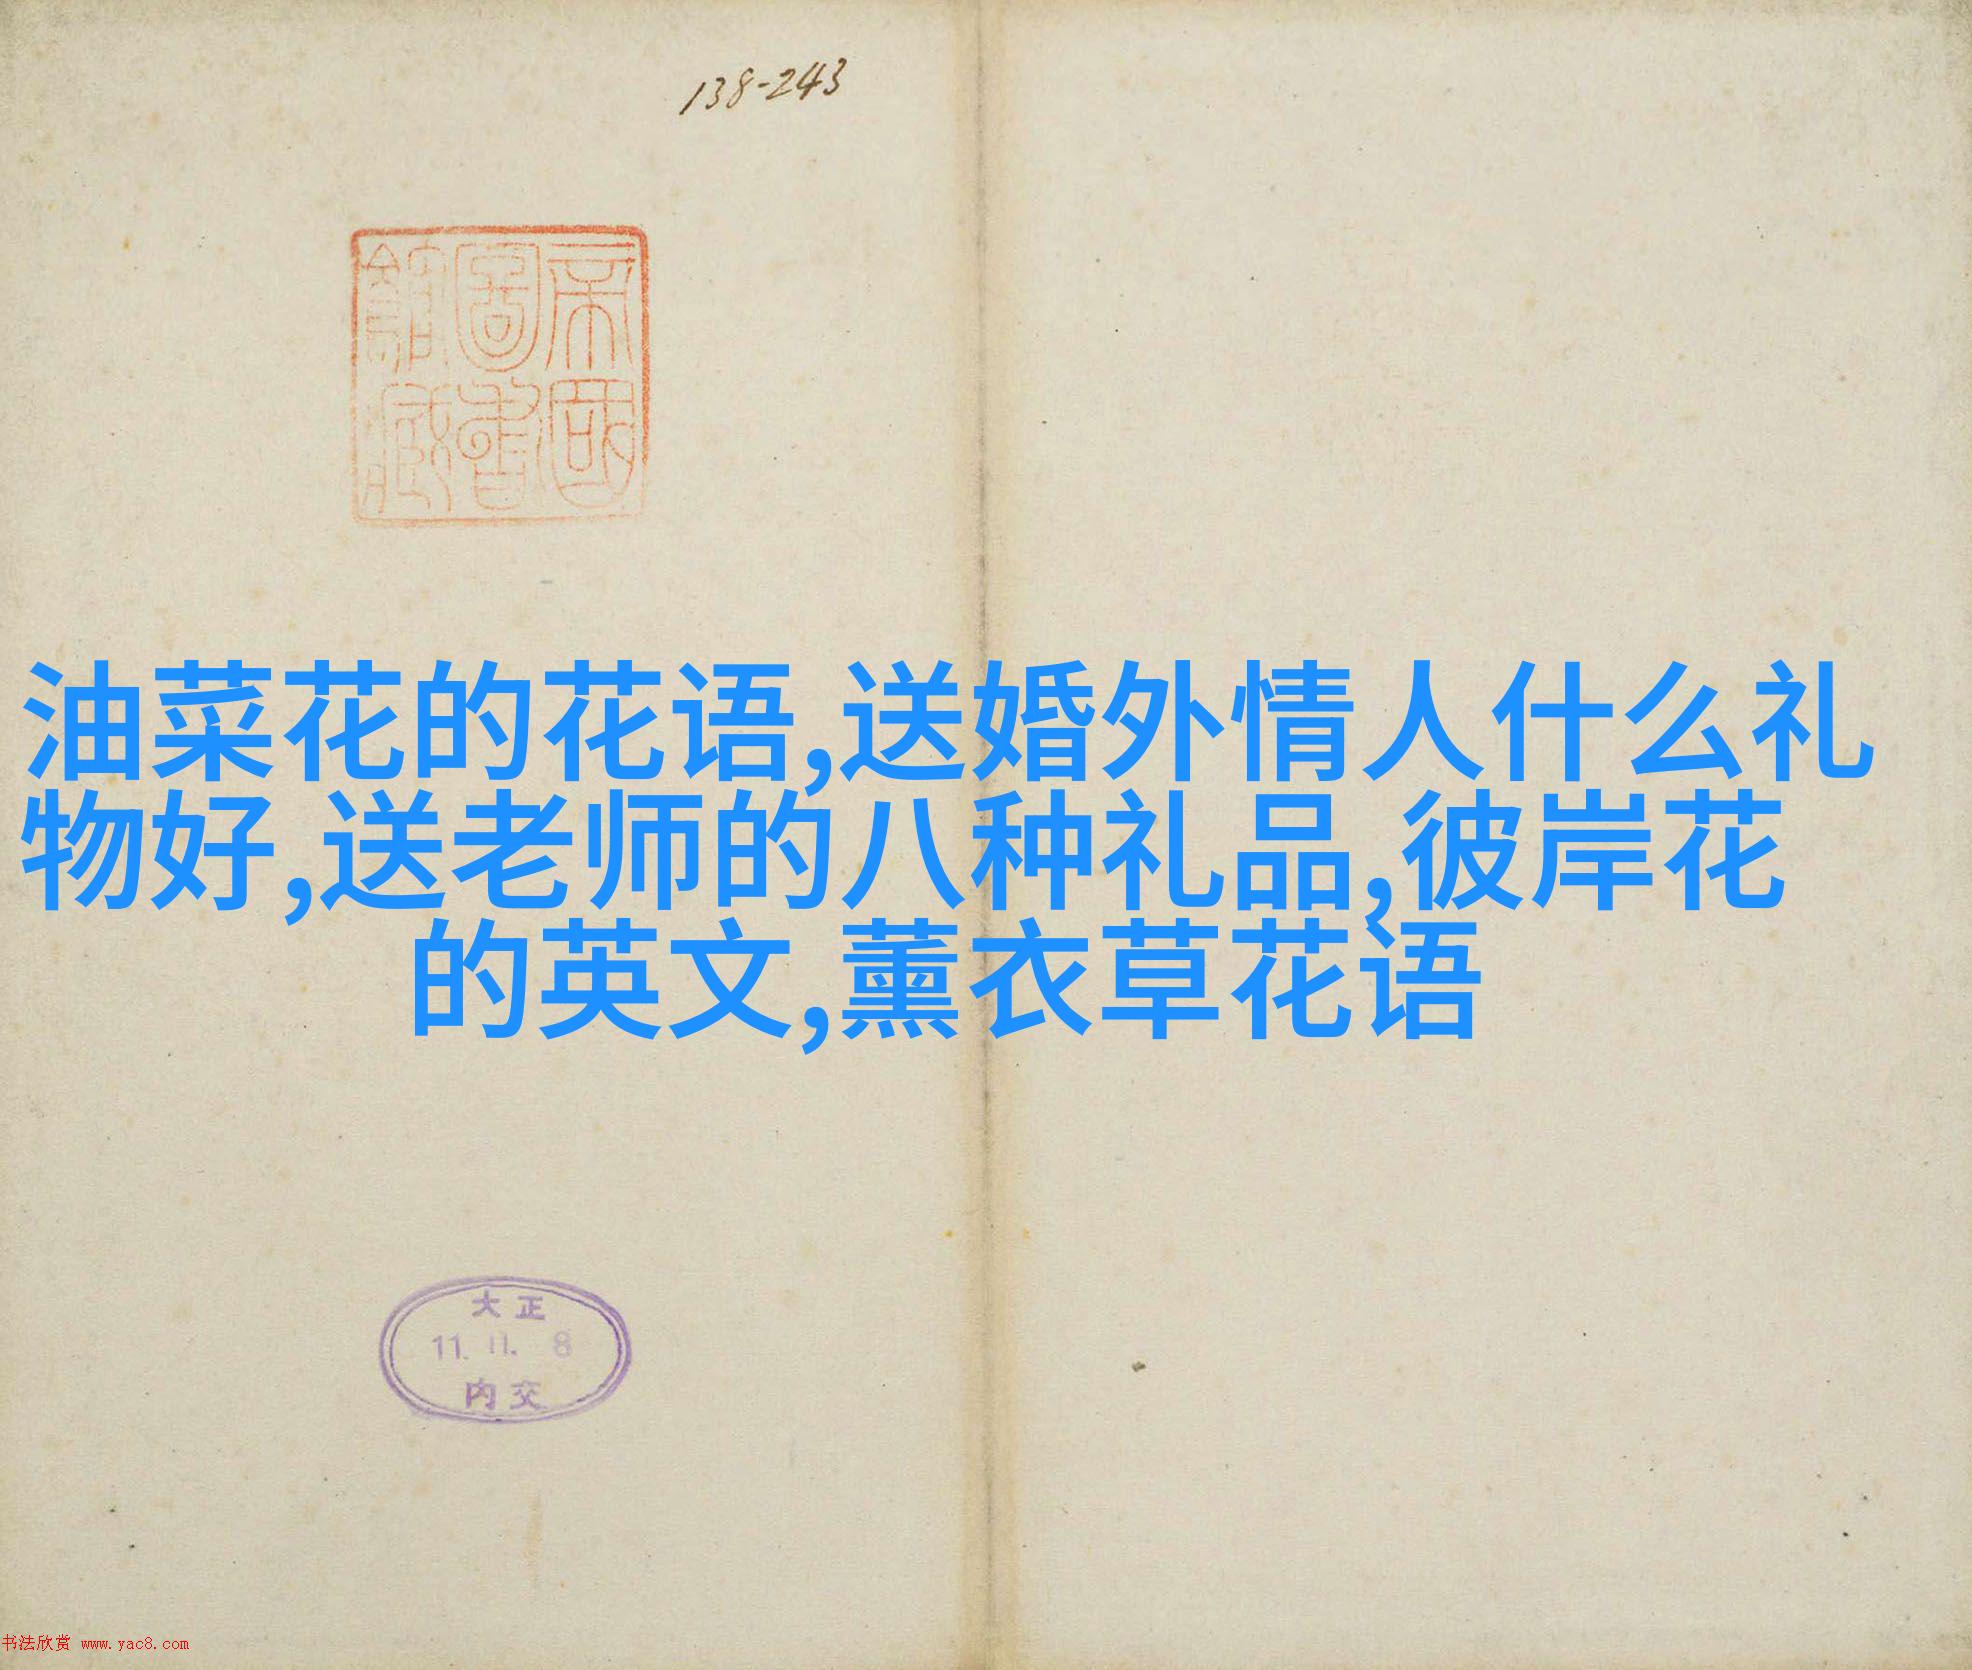 138-243
帝國
圖書
館藏
油菜花的花语,送婚外情人什么礼
物好,送老师的八种礼品,彼岸花
的英文,薰衣草花语
大正
11. 11. 8
内交
书法欣赏 www.yac8.com